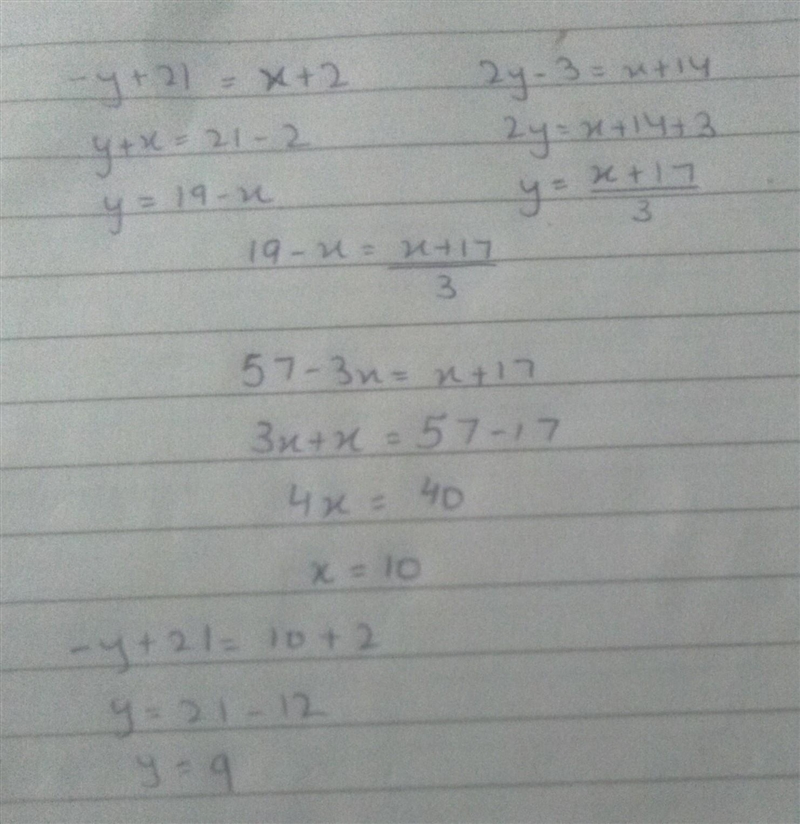 -y+21 = x+2
2y-3 = x+14
y+x = 21-2
2y = x+14+3
y = 19-x
y = x+17/3
19-x = x+17/3
57-3x = x+17
3x+x = 57-17
4x = 40
x = 10
-y+21 = 10+2
y = 21-12
y = 9